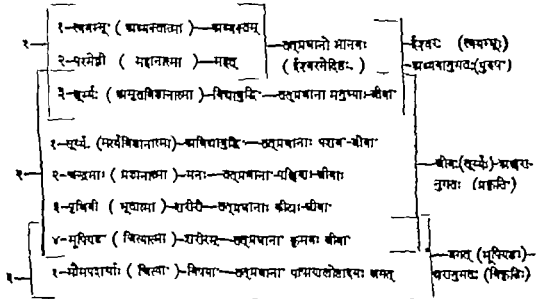 १ १-स्वयम्भू (अव्यक्तात्मा)-अव्यक्तम्
२-परमेष्ठी (महानात्मा)-महत् तत्प्रधानो मानवः (ईश्वरसेहितः) ईश्वरः (स्वयम्भूः) अव्ययानुगतः (पुरुष)
३-सूर्य्यः (अमृतविज्ञानात्मा)-विद्याबुद्धि-तत्प्रधाना मनुष्याः-जीवा
२ १-सूर्य्यः (मर्त्यविज्ञानात्मा)-अविद्याबुद्धि-तत्प्रधानाः पशवः जीवा
२-चन्द्रमाः (प्रज्ञानात्मा)-मनः-तत्प्रधानाः पक्षिणः-जीवाः जीवः (सूर्य्यः)-अक्षरानुगतः (प्रकृति)
३-पृथिवी (भूतात्मा)-शरीरं-तत्प्रधानाः कीटाः-जीवा
४-भूपिण्ड (चित्यात्मा)-शरीरम्-तत्प्रधाना कृमयः जीवा
३ १-भौमपदार्थाः (चित्या)-विषया-तत्प्रधाना जगत् जगत् (भूपिण्डः)-क्षरानुगतः (विकृतिः)